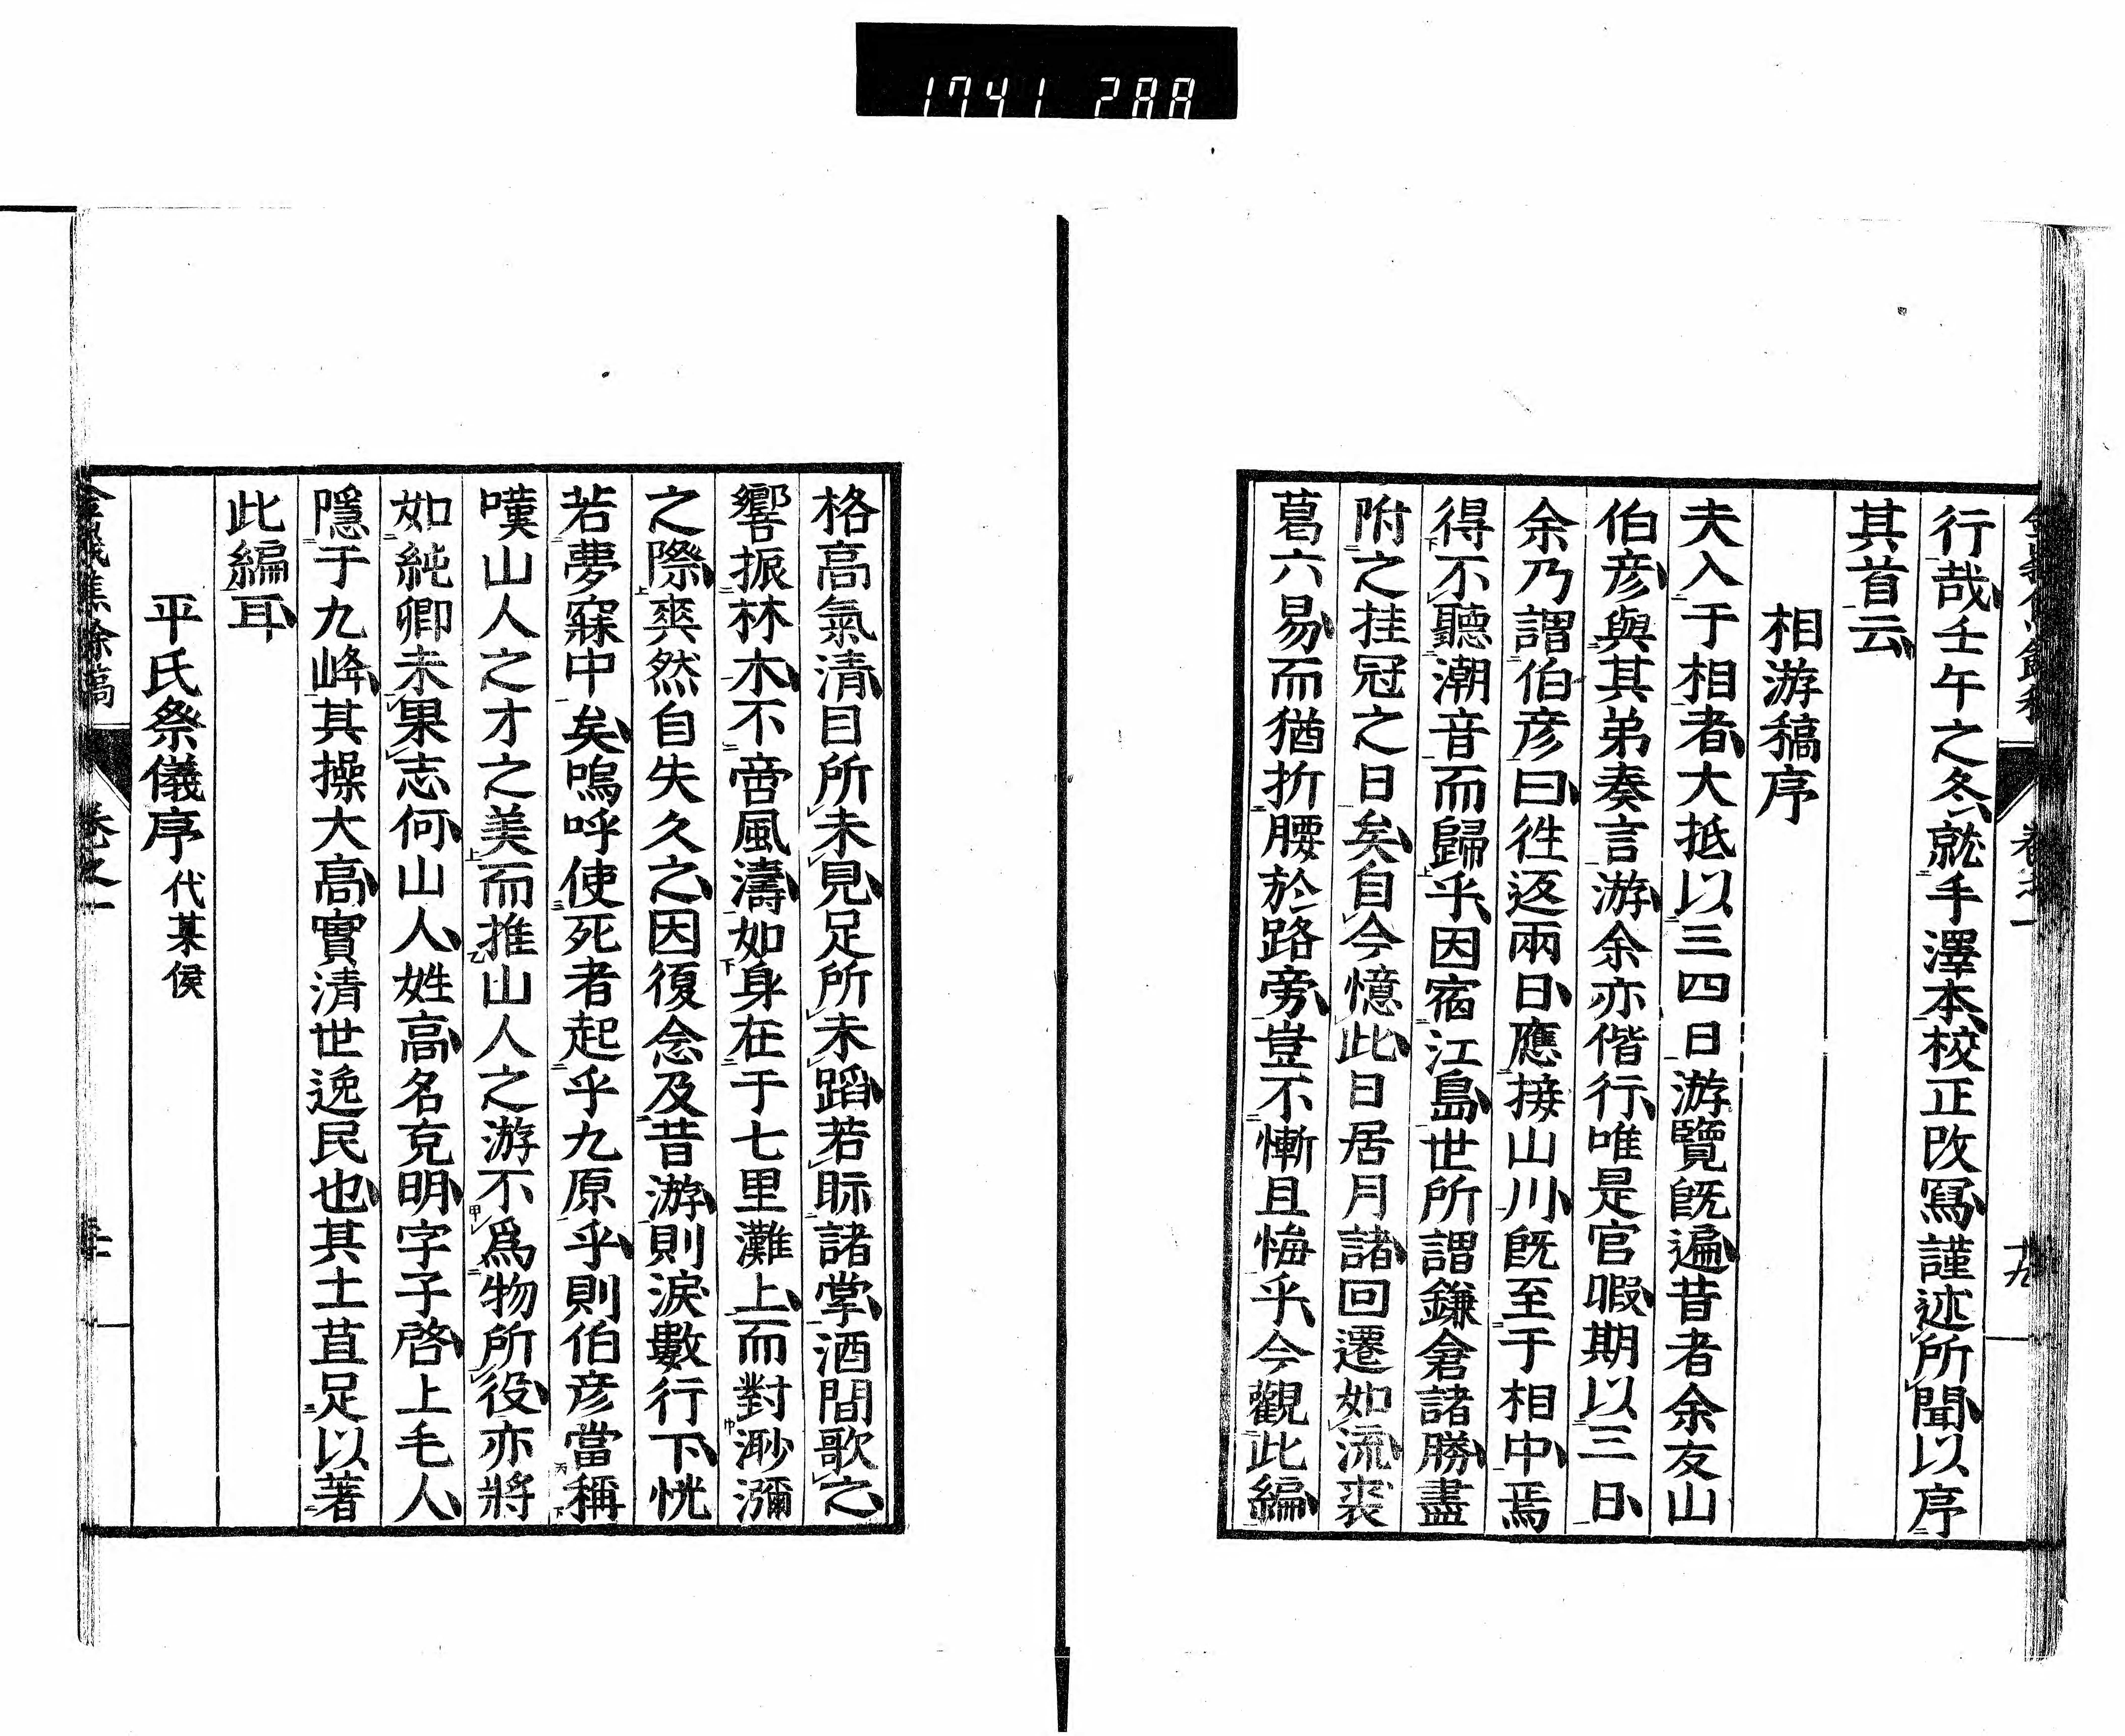 1741 288
行哉壬午之冬就手澤本校正改寫謹述所聞以序
其首云
相游稿序
夫入于相者大抵以三四日游覽旣遍昔者余友山
伯彦與其弟奏言游余亦偕行唯是官暇期以三日
余乃謂伯彦曰徃返兩日應接山川旣至于相中焉
得不聽潮音而歸乎因宿江島世所謂鎌倉諸勝盡
附之挂冠之日矣自今憶此日居月諸回遷如流裘
葛六易而猶折腰於路旁豈不慚且悔乎今觀此編
格高氣清目所未見足所未蹈若眎諸掌酒間歌之
響振林木不啻風濤如身在于七里灘上而對渺瀰
之際爽然自失久之因復念及昔游則淚數行下恍
若夢寐中矣嗚呼使死者起乎九原乎則伯彦當稱
嘆山人之才之美而推山人之游不爲物所役亦將
如純卿未果志何山人姓高名克明字子啓上毛人
隱于九峰其操大高實清世逸民也其士苴足以著
此編耳
平氏祭儀序 代某侯
卷之一